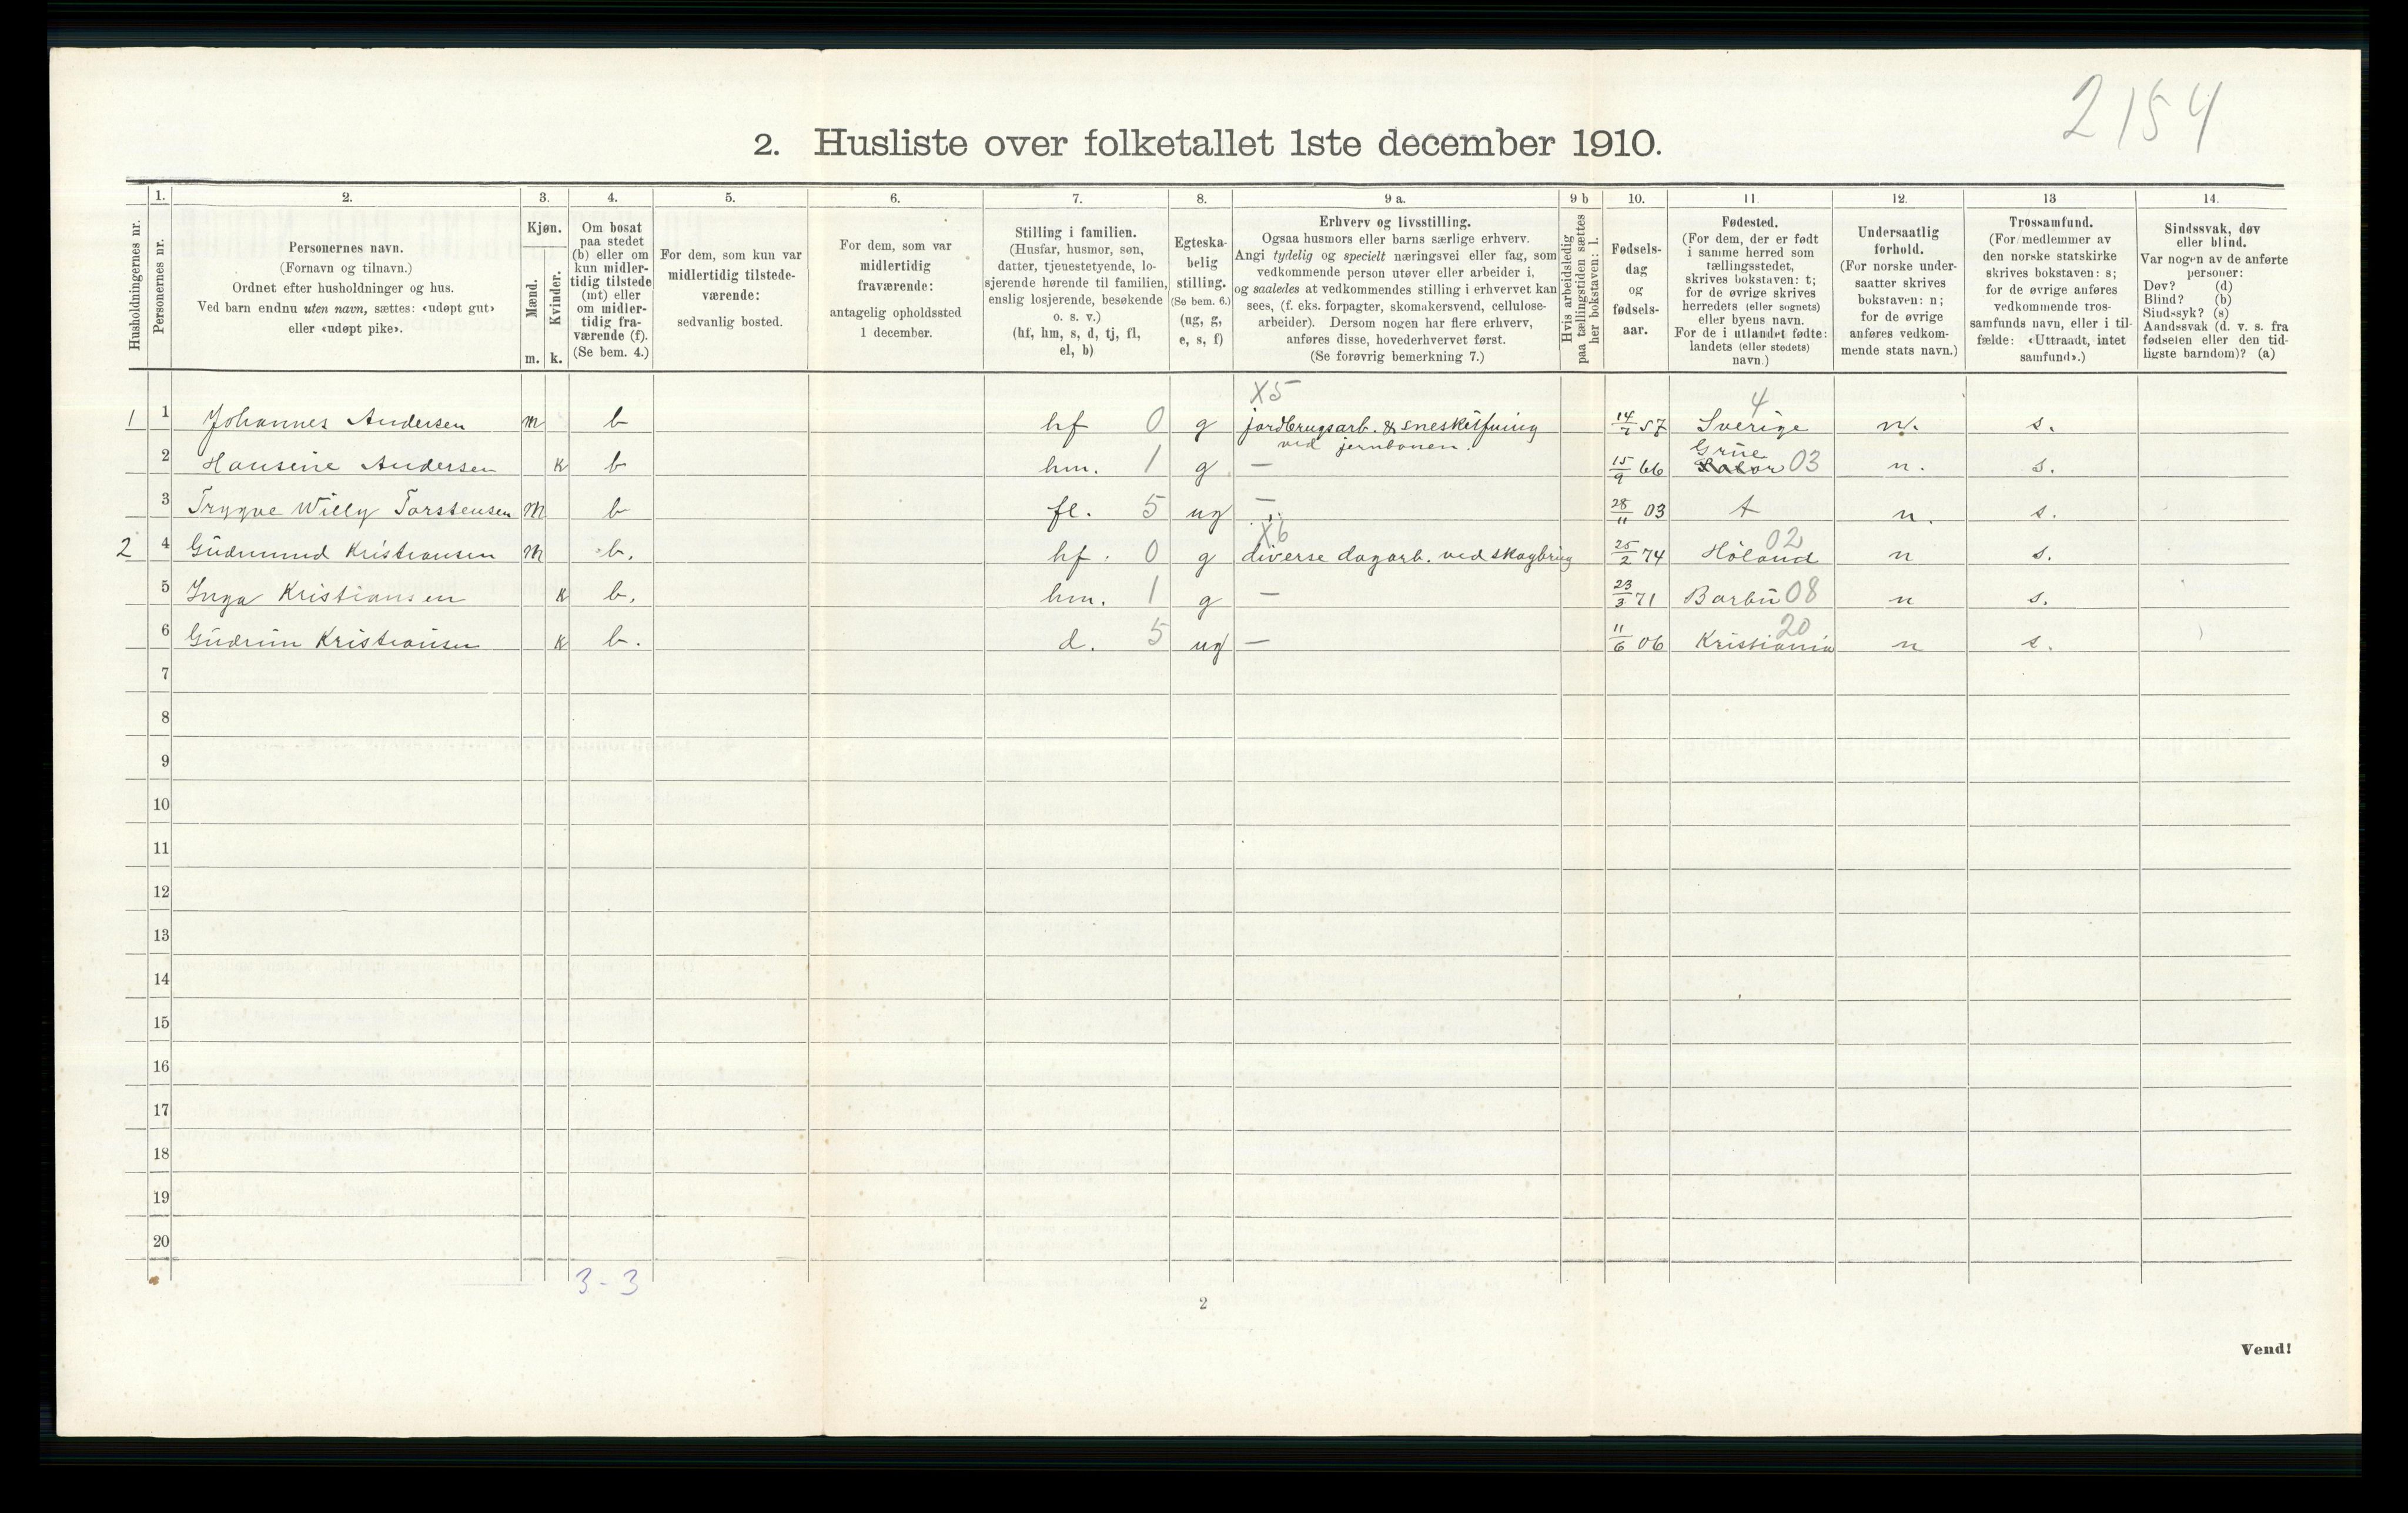 2154
2. Husliste over folketallet 1ste december 1910.
Husholdningernes nr.
1.
Personernes nr.
2.
Personernes navn.
(Fornavn og tilnavn.)
Ordnet efter husholdninger og hus.
Ved barn endnu uten navn, sættes: «udøpt gut»
eller «udøpt pike».
3.
Kjøn.
Mænd.
Kvinder.
m. k.
4.
Om bosat
paa stedet
(b) eller om
kun midler-
tidig tilstede
(mt) eller
om midler-
tidig fra-
værende (f).
(Se bem. 4.)
5.
For dem, som kun var
midlertidig tilstede-
værende:
sedvanlig bosted.
6.
For dem, som var
midlertidig
fraværende:
antagelig opholdssted
1 december.
7.
Stilling i familien.
(Husfar, husmor, søn,
datter, tjenestetyende, lo-
sjerende hørende til familien,
enslig losjerende, besøkende
o. s. v.)
(hf, hm, s, d, tj, fl,
el, b)
8.
Egteska-
belig
stilling.
(Se bem. 6.)
(ug, g,
e, s, f)
9 a.
Erhverv og livsstilling.
Ogsaa husmors eller barns særlige erhverv.
Angi tydelig og specielt næringsvei eller fag, som
vedkommende person utøver eller arbeider i,
og saaledes at vedkommendes stilling i erhvervet kan
sees, (f. eks. forpagter, skomakersvend, cellulose-
arbeider). Dersom nogen har flere erhverv,
anføres disse, hovederhvervet først.
(Se forøvrig bemerkning 7.)
9 b
Hvis arbeidsledig
paa tællingstiden sættes
her bokstaven: l.
10.
Fødsels-
dag
og
fødsels-
aar.
11.
Fødested.
(For dem, der er født
i samme herred som
tællingsstedet,
skrives bokstaven: t;
for de øvrige skrives
herredets (eller sognets)
eller byens navn.
For de i utlandet fødte:
landets (eller stedets)
navn.)
12.
Undersaatlig
forhold.
(For norske under-
saatter skrives
bokstaven: n;
for de øvrige
anføres vedkom-
mende stats navn.)
13
Trossamfund.
(For medlemmer av
den norske statskirke
skrives bokstaven: s;
for de øvrige anføres
vedkommende tros-
samfunds navn, eller i til-
fælde: «Uttraadt, intet
samfund».)
14.
Sindssvak, døv
eller blind.
Var nogen av de anførte
personer:
Døv? (d)
Blind? (b)
Sindssyk? (s)
Aandssvak (d. v. s. fra
fødselen eller den tid-
ligste barndom)? (a)
X5 4
1 1 Johannes Andersen m b hf 0 g jordbrugsarb. & sneskufning 14/7 57 Sverige n. s.
ved jernbanen. Grue
2 Hansine Andersen k b hm. 1 g — 15/9 66 03 n. s.
3 Trygve Willy Torstensen m b fl. 5 ug — 28/11 03 t n. s.
X6 02
2 4 Gudmund Kristiansen m b. hf. 0 g diverse dagarb. ved skogbrug 25/2 74 Høland n s.
5 Inga Kristiansen k b. hm. 1 g — 23/3 71 Barbu 08 n s.
20
6 Gudrun Kristiansen k b. d. 5 ug — 11/6 06 Kristiania n s.
7
8
9
10
11
12
13
14
15
16
17
18
19
20
3 - 3
2
Vend!